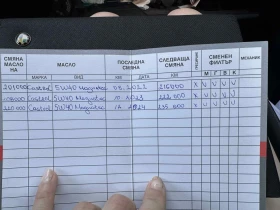 СМЯНА МАСЛО НА МАСЛО ПОСЛЕДНА СМЯНА СЛЕДВАЩА СМЯНА СМЕНЕН ФИЛТЪР МЕХАНИК
МАРКА ВИД КМ ДАТА КМ М Г В К
201000 Castrol 5W40 Magnatec 2022 216000 X V V V
Castrol 5W40 Magnatec 2023 212000 X V V V
220000 Castrol 5W40 Magnatec 2024 235000 X V V V